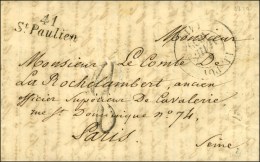 41
St Paulien
Monsieur
Monsieur Le Comte De
La Rochelambert, ancien
officier Supérieur De Cavalerie
rue St Dominique no 74.
Paris.
Seine